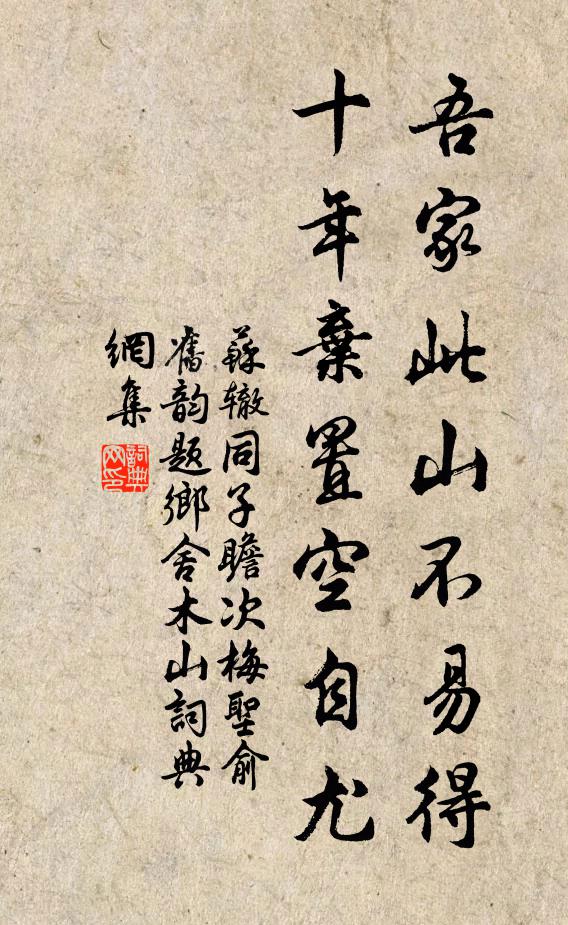 吾家此山不易得
十年棄置空自尤
蘇辙同子瞻次梅聖俞
舊韵题鄉舍木山詞典
網集
詞典網印